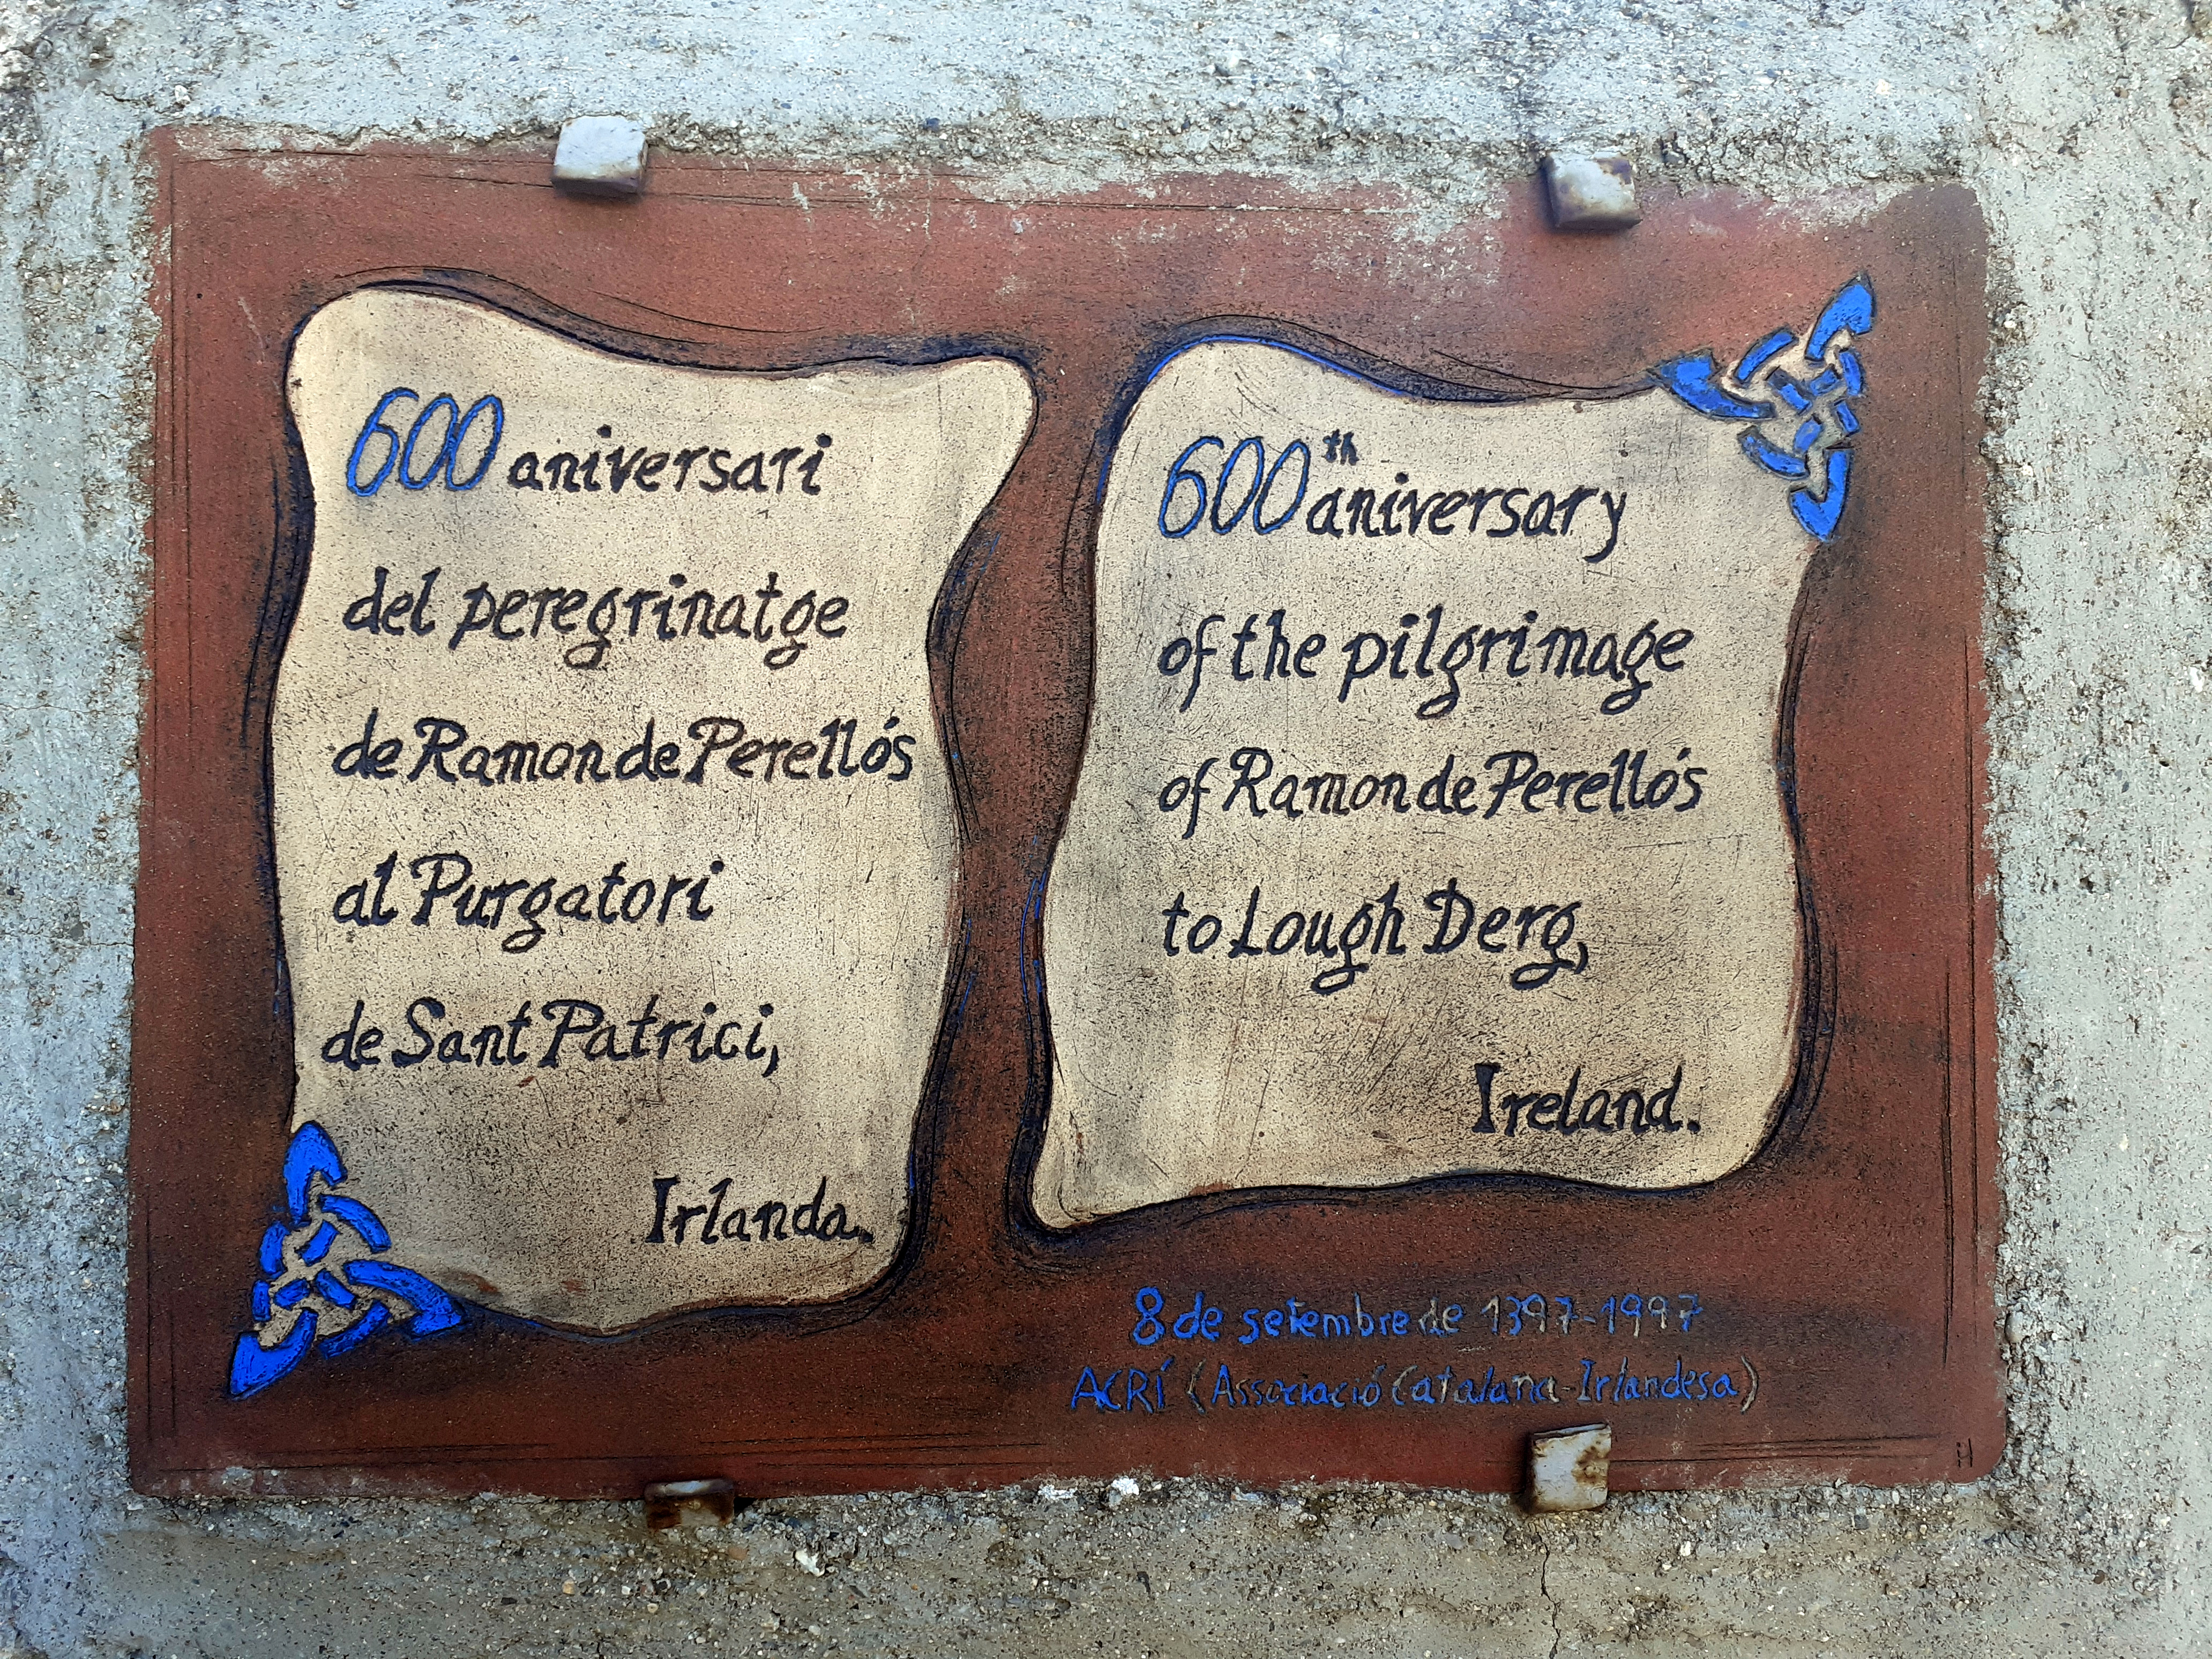 600 aniversari
del peregrinatge
de Ramon de Perellós
al Purgatori
de Sant Patrici,
Irlanda.
600th aniversary
of the pilgrimage
of Ramon de Perellós
to Lough Derg,
Ireland.
8 de setembre de 1397-1997
ACRÍ (Associació Catalana-Irlandesa)